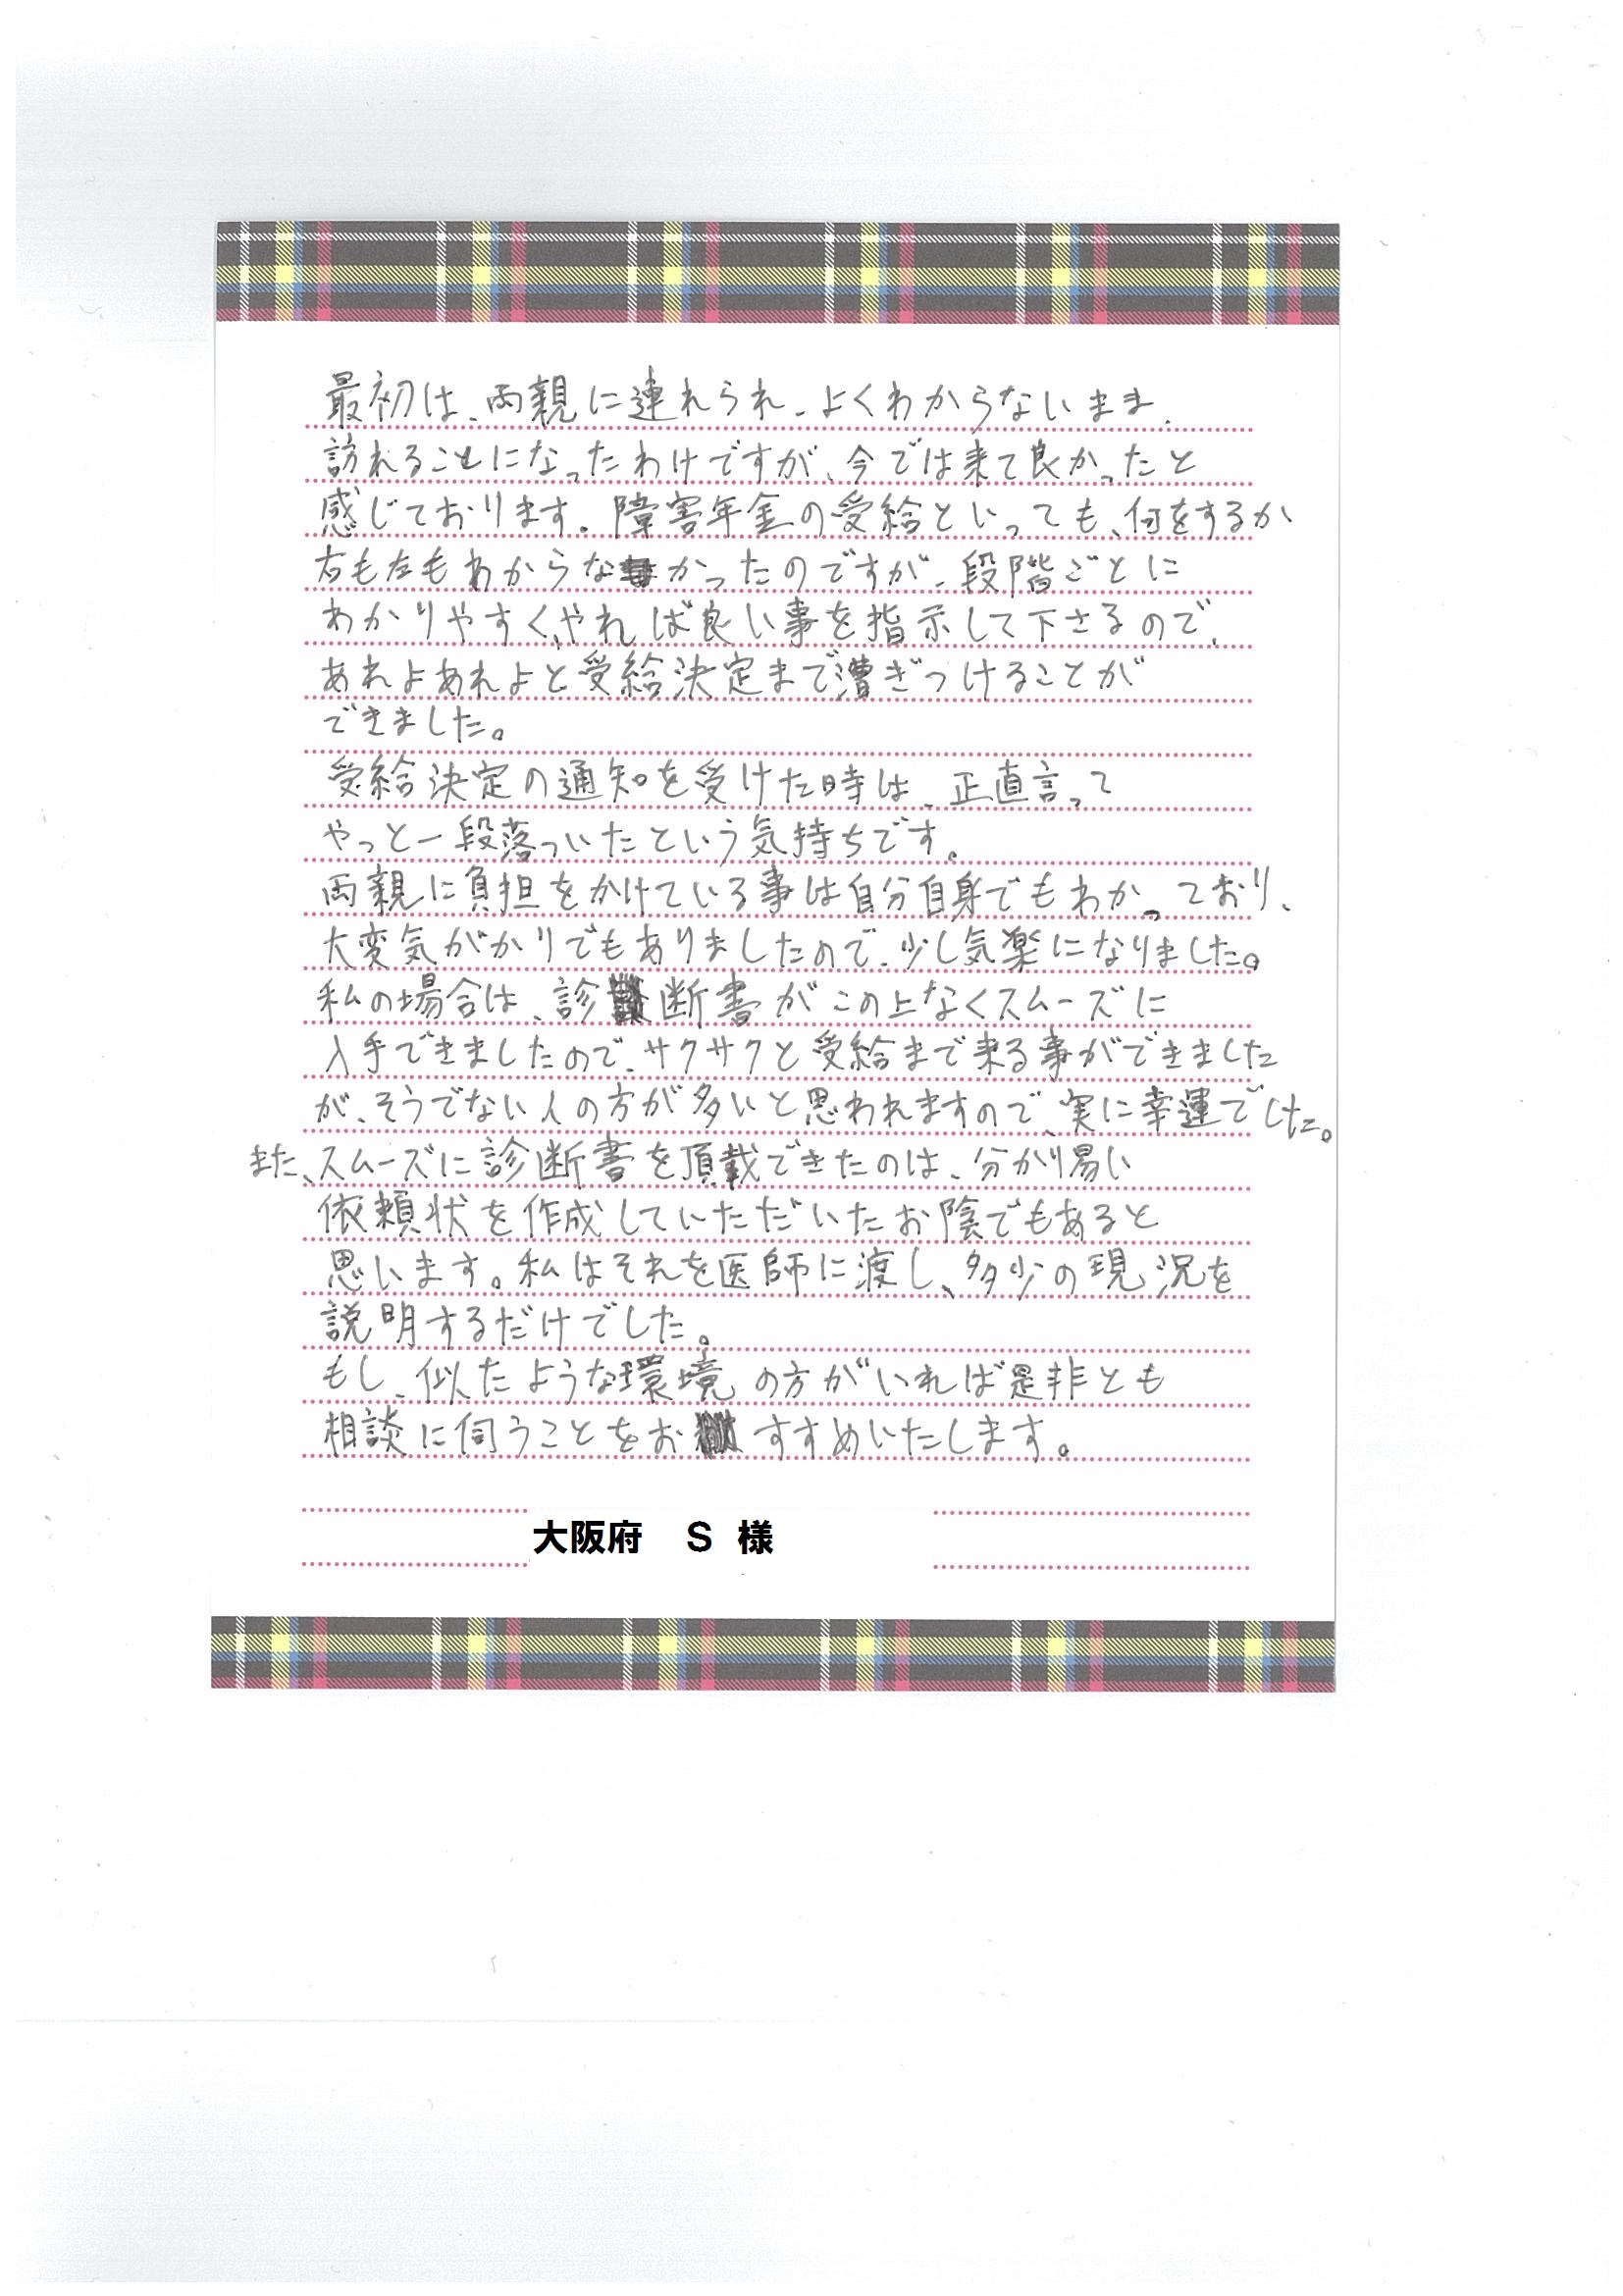 最初は、両親に連れられ、よくわからないまま、
訪れることになったわけですが、今では来て良かったと
感じております。障害年金の受給といっても、何をするか
右も左もわからなかったのですが、段階ごとに
わかりやすく、やれば良い事を指示して下さるので、
あれよあれよと受給決定まで漕ぎつけることが
できました。
受給決定の通知を受けた時は、正直言って
やっと一段落ついたという気持ちです。
両親に負担をかけている事は自分自身でもわかっており、
大変気がかりでもありましたので、少し気楽になりました。
私の場合は、診断書がこの上なくスムーズに
入手できましたので、サクサクと受給まで来る事ができました
が、そうでない人の方が多いと思われますので、実に幸運でした。
また、スムーズに診断書を頂戴できたのは、分かり易い
依頼状を作成していただいたお陰でもあると
思います。私はそれを医師に渡し、多少の現況を
説明するだけでした。
もし、似たような環境の方がいれば是非とも
相談に伺うことをおすすめいたします。
大阪府 S 様